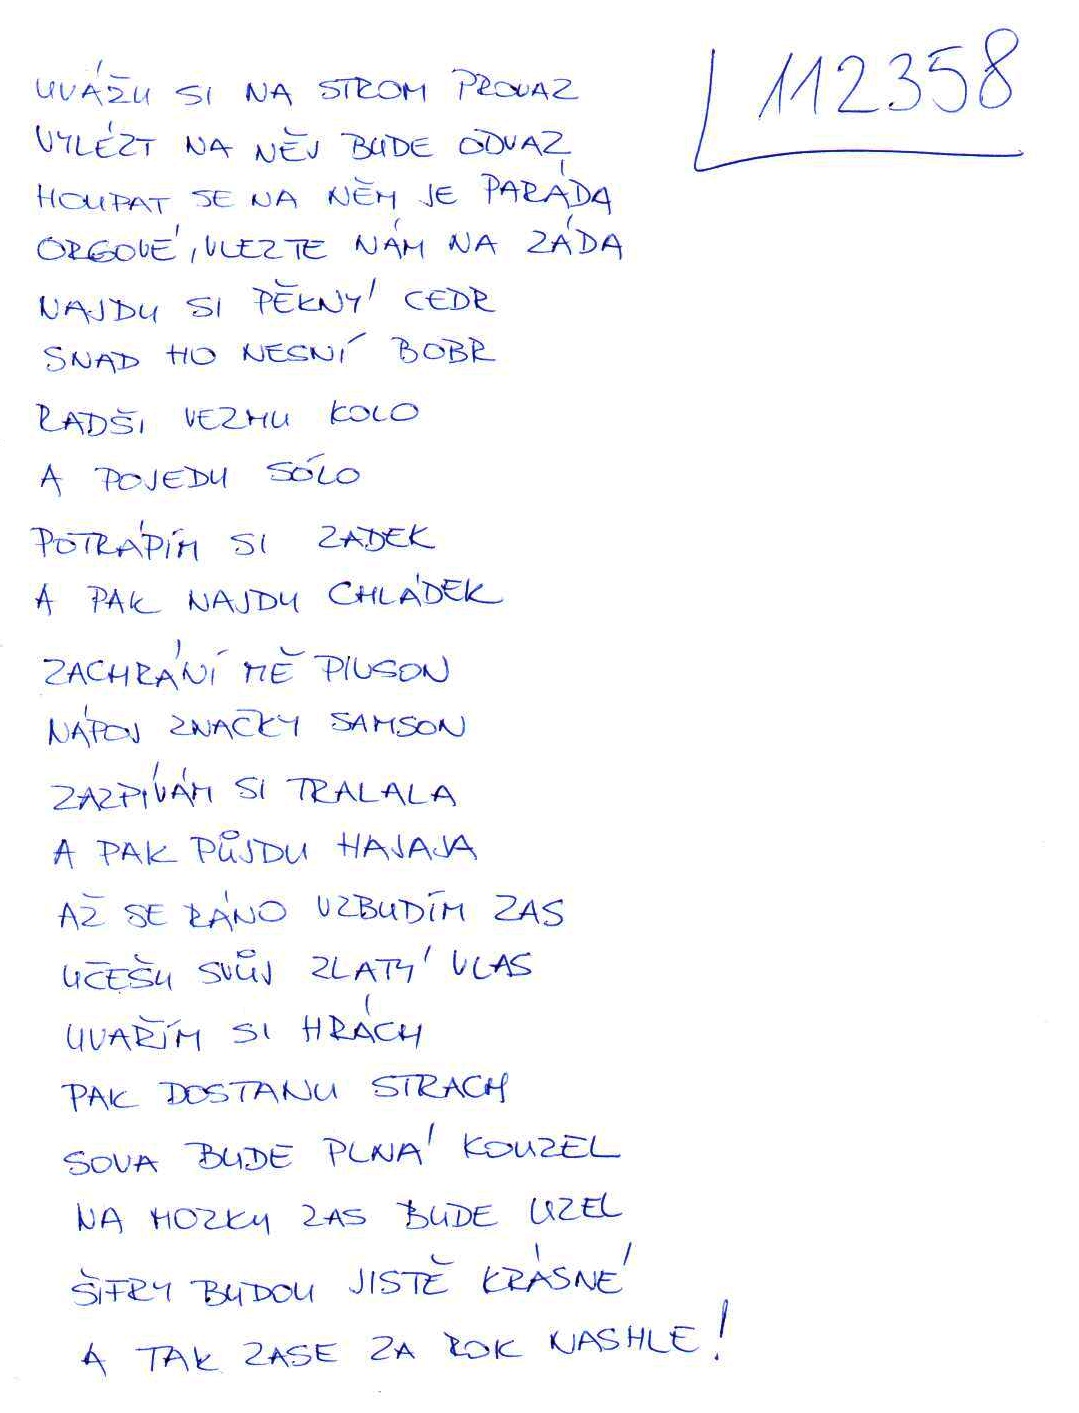 112358
UVÁŽU SI NA STROM PROVAZ
VYLÉZT NA NĚJ BUDE ODVAZ
HOUPAT SE NA NĚM JE PARÁDA
ORGOVÉ, VLEZTE NÁM NA ZÁDA
NAJDU SI PĚKNÝ CEDR
SNAD HO NESNÍ BOBR
RADŠI VEZMU KOLO
A POJEDU SÓLO
POTRÁPÍM SI ZADEK
A PAK NAJDU CHLÁDEK
ZACHRÁNÍ MĚ PIVSON
NÁPOJ ZNAČKY SAMSON
ZAZPÍVÁM SI TRALALA
A PAK PŮJDU HAJAJA
AŽ SE RÁNO VZBUDÍM ZAS
UČEŠU SVŮJ ZLATÝ VLAS
UVAŘÍM SI HRÁCH
PAK DOSTANU STRACH
SOVA BUDE PLNÁ KOUZEL
NA MOZKY ZAS BUDE UZEL
ŠIFRY BUDOU JISTĚ KRÁSNÉ
A TAK ZASE ZA ROK NASHLE!